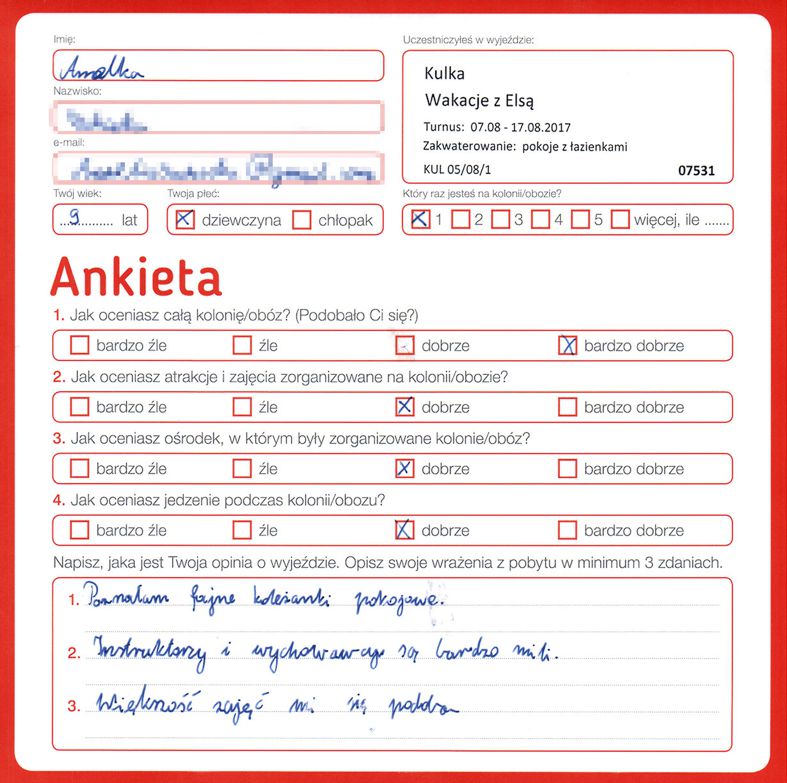 Imię:
Amelka
Uczestniczyłeś w wyjeździe:
Kulka
Wakacje z Elsą
Turnus: 07.08 - 17.08.2017
Zakwaterowanie: pokoje z łazienkami
KUL 05/08/1 07531
Nazwisko:
e-mail:
Twój wiek:
...9.......... lat
Twoja płeć:
dziewczyna chłopak
Który raz jesteś na kolonii/obozie?
1 2 3 4 5 więcej, ile .......
Ankieta
1. Jak oceniasz całą kolonię/obóz? (Podobało Ci się?)
bardzo źle źle dobrze bardzo dobrze
2. Jak oceniasz atrakcje i zajęcia zorganizowane na kolonii/obozie?
bardzo źle źle dobrze bardzo dobrze
3. Jak oceniasz ośrodek, w którym były zorganizowane kolonie/obóz?
bardzo źle źle dobrze bardzo dobrze
4. Jak oceniasz jedzenie podczas kolonii/obozu?
bardzo źle źle dobrze bardzo dobrze
Napisz, jaka jest Twoja opinia o wyjeździe. Opisz swoje wrażenia z pobytu w minimum 3 zdaniach.
1. Poznałam fajne koleżanki pokojowe.
2. Instruktorzy i wychowawcy są bardzo mili.
3. Większość zajęć mi się podoba